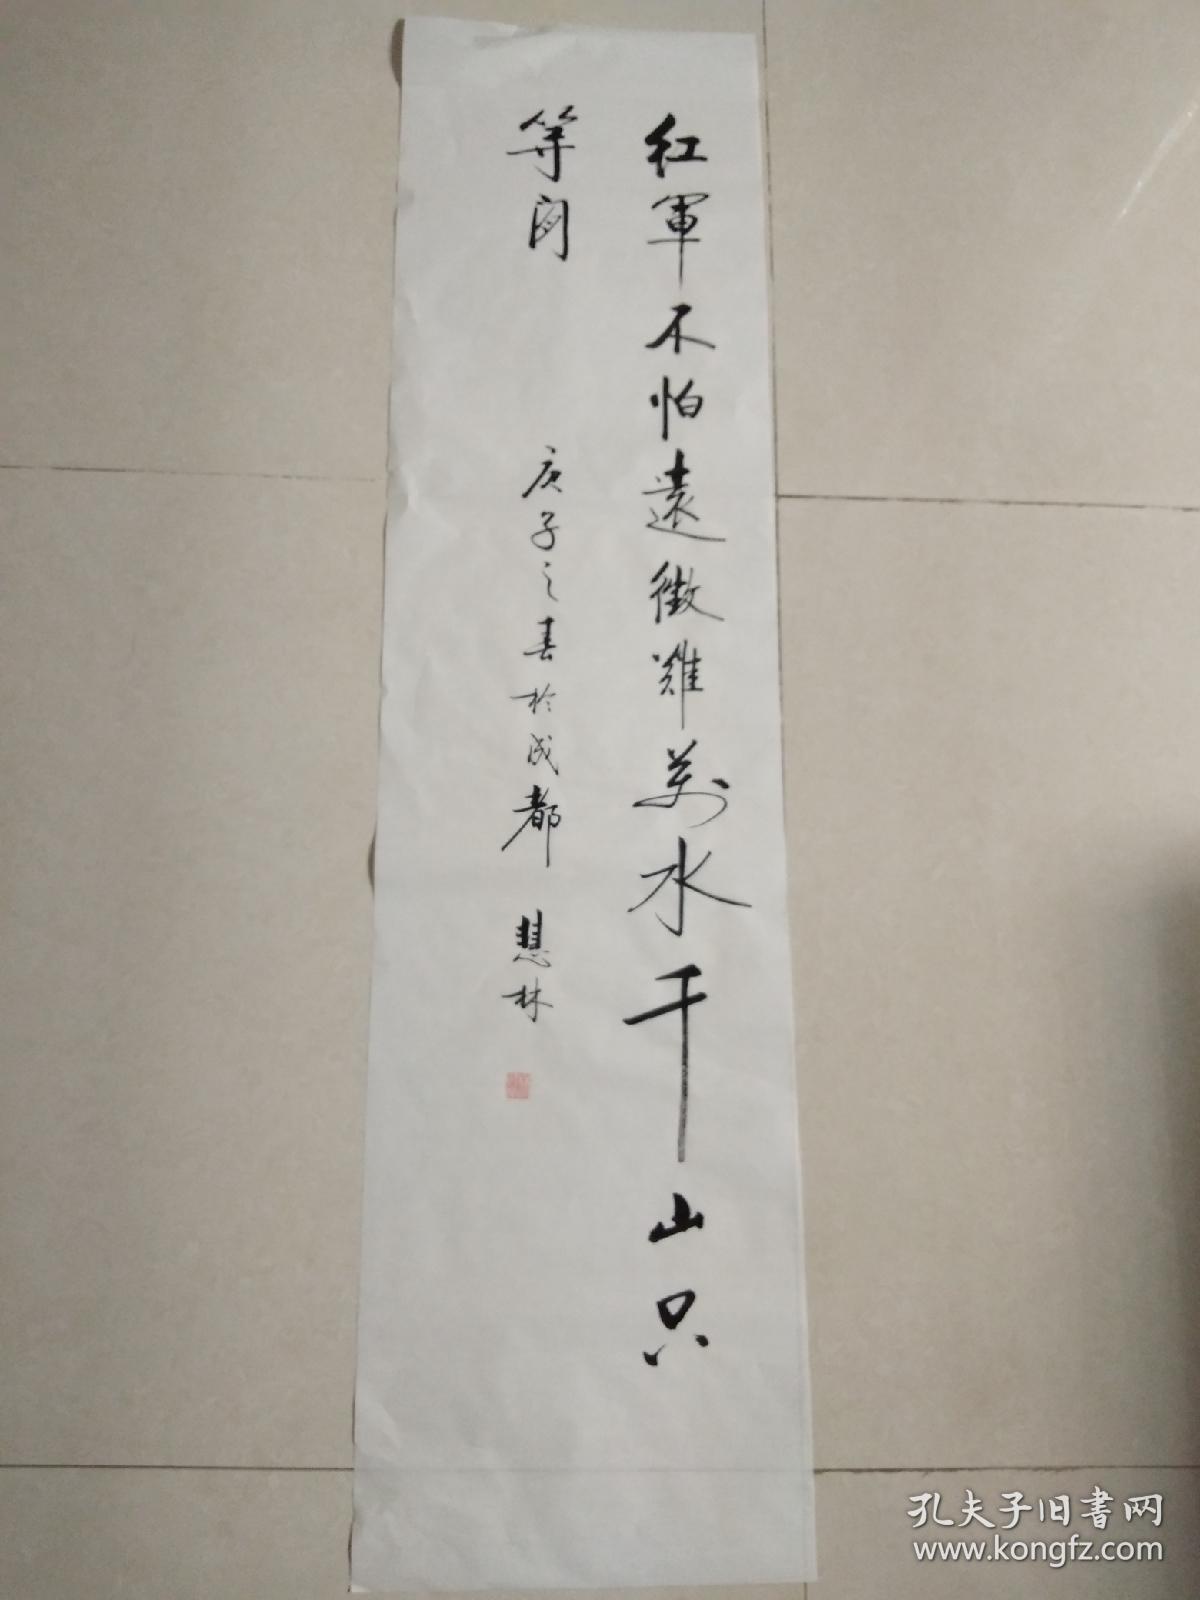 红軍不怕遠徵難萬水千山只
等闲
庚子之春於成都 慧林
孔夫子旧書网
www.kongfz.com